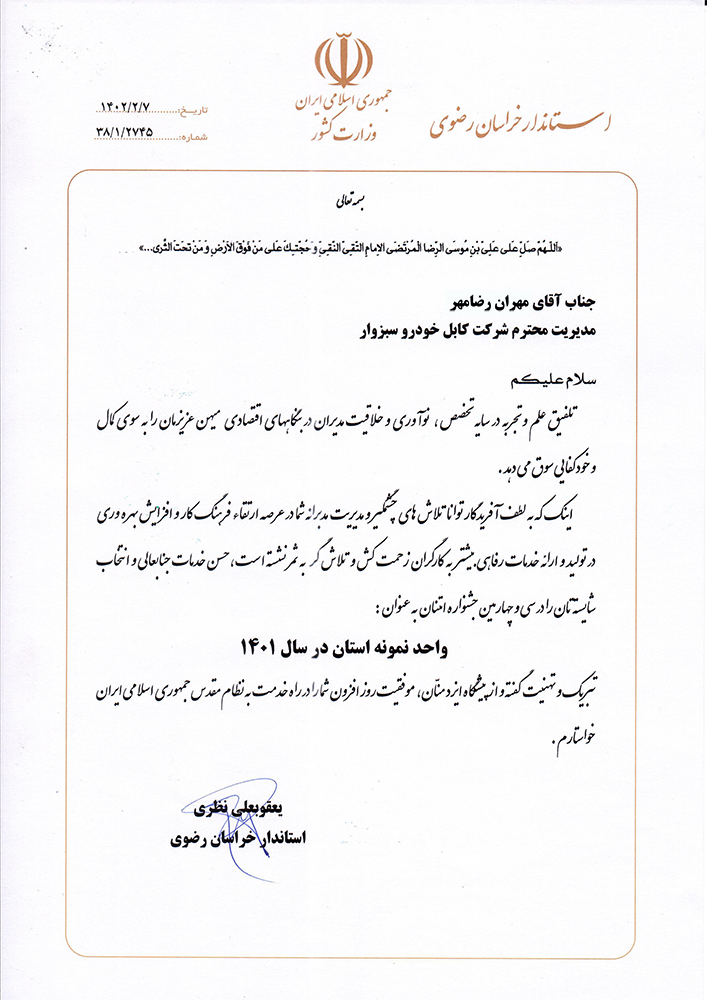 جمهوری اسلامی ایران
وزارت کشور
استاندار خراسان رضوی
تاریخ: ۱۴۰۲/۲/۷
شماره: ۳۸/۱/۲۷۴۵
بسمه تعالی
«اَللّهُمَّ صَلِّ عَلی عَلِیِّ بْنِ مُوسَی الرِّضا الْمُرْتَضَی الاِمامِ التَّقِیِّ النَّقِیِّ وَ حُجَّتِکَ عَلی مَنْ فَوْقَ الاَرْضِ وَ مَنْ تَحْتَ الثَّری...»
جناب آقای مهران رضامهر
مدیریت محترم شرکت کابل خودرو سبزوار
سلام علیکم
تلفیق علم و تجربه در سایه تخصص، نوآوری و خلاقیت مدیران در بنگاههای اقتصادی میهن عزیزمان را به سوی کمال
و خودکفایی سوق می دهد.
اینک که به لطف آفریدگار توانا تلاش های چشمگیر و مدیریت مدبرانه شما در عرصه ارتقاء فرهنگ کار و افزایش بهره وری
در تولید و ارائه خدمات رفاهی بیشتر به کارگران زحمت کش و تلاش گر به ثمر نشسته است، حسن خدمات جنابعالی و انتخاب
شایسته تان را در سی و چهارمین جشنواره امتنان به عنوان:
واحد نمونه استان در سال ۱۴۰۱
تبریک و تهنیت گفته و از پیشگاه ایزد منّان، موفقیت روز افزون شما را در راه خدمت به نظام مقدس جمهوری اسلامی ایران
خواستارم.
یعقوبعلی نظری
استاندار خراسان رضوی